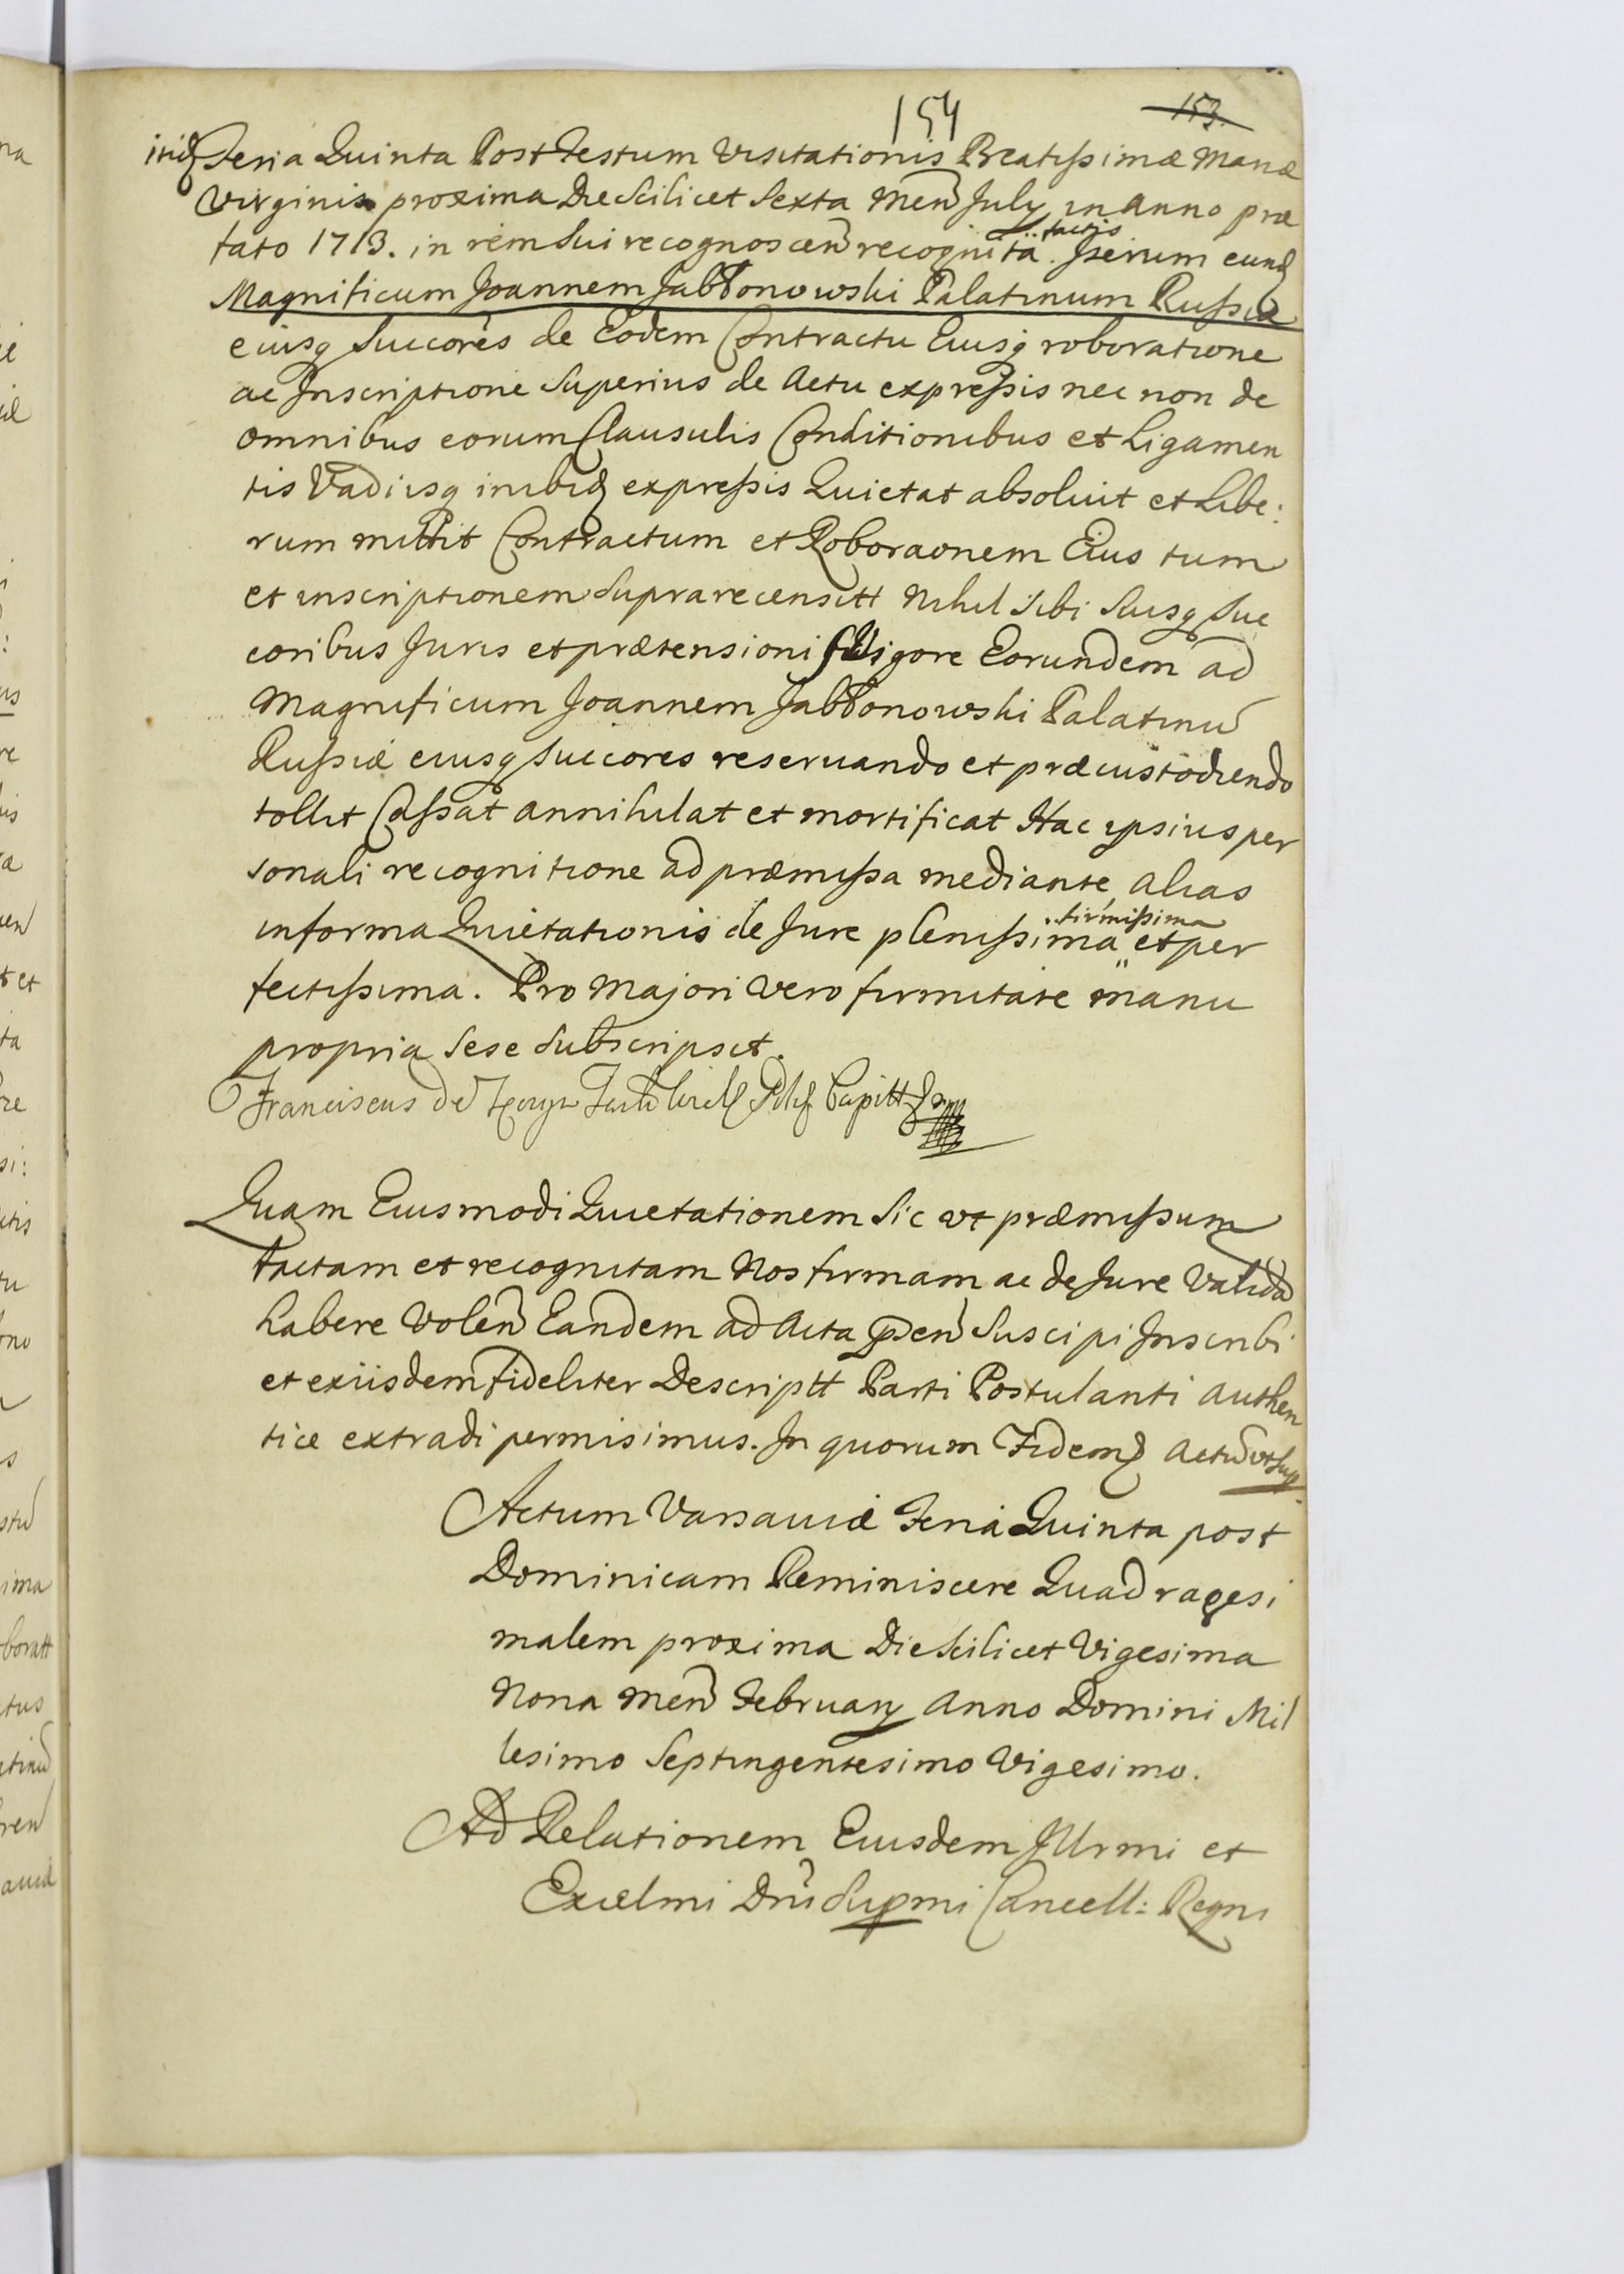 154
153.
Feria Quinta Post Festum Visitationis Beatissimæ Mariæ
Virginis proxima Die Scilicet Sexta Men July in Anno præ
tato 1713. in rem sui recognoscen recognita. factis Iterum eund
Magnificum Joannem Jabłonowski Palatinum Russiæ
eiusq Succores de Eodem Contractu Eiusq roboratione
ac Inscriptione Superius de Actu expressis nec non de
omnibus eorum Clausulis Conditionibus et Ligamen
tis Vadiisq inibid expressis Quietat absoluit et Libe:
rum mittit Contractum et Roboraonem Eius tum
et inscriptionem supra recensitt Nihil sibi Suisq Suc
coribus Juris et prætensioni Vigore Eorundem ad
Magnificum Joannem Jabłonowski Palatinu
Russiæ eiusq Succores reseruando et præcustodiendo
tollit Cassat annihilat et mortificat Hac ipsius per
sonali recognitione ad præmissa mediante, alias
in forma Quietationis de Jure plenissima firmissima et per
fectissima. Pro Majori vero firmitate manu
propria sese subscripsit.
Franciscus de Capitt
Quam Eiusmodi Quietationem Sic vt præmissum
factam et recognitam Nos firmam ac de Jure Valida
habere Volen Eandem ad Acta Psen Suscipi Inscribi
et ex iisdem fideliter Descriptt Parti Postulanti authen
tice extradi permisimus. In quorum Fidem Actu vt sup
Actum Varsauiæ Feria Quinta post
Dominicam Reminiscere Quadragesi
malem proxima Die Scilicet Vigesima
Nona Men February Anno Domini Mil
lesimo Septingentesimo Vigesimo.
Ad Relationem Eiusdem Illrmi et
Excelmi Dni Supmi Cancell: Regni